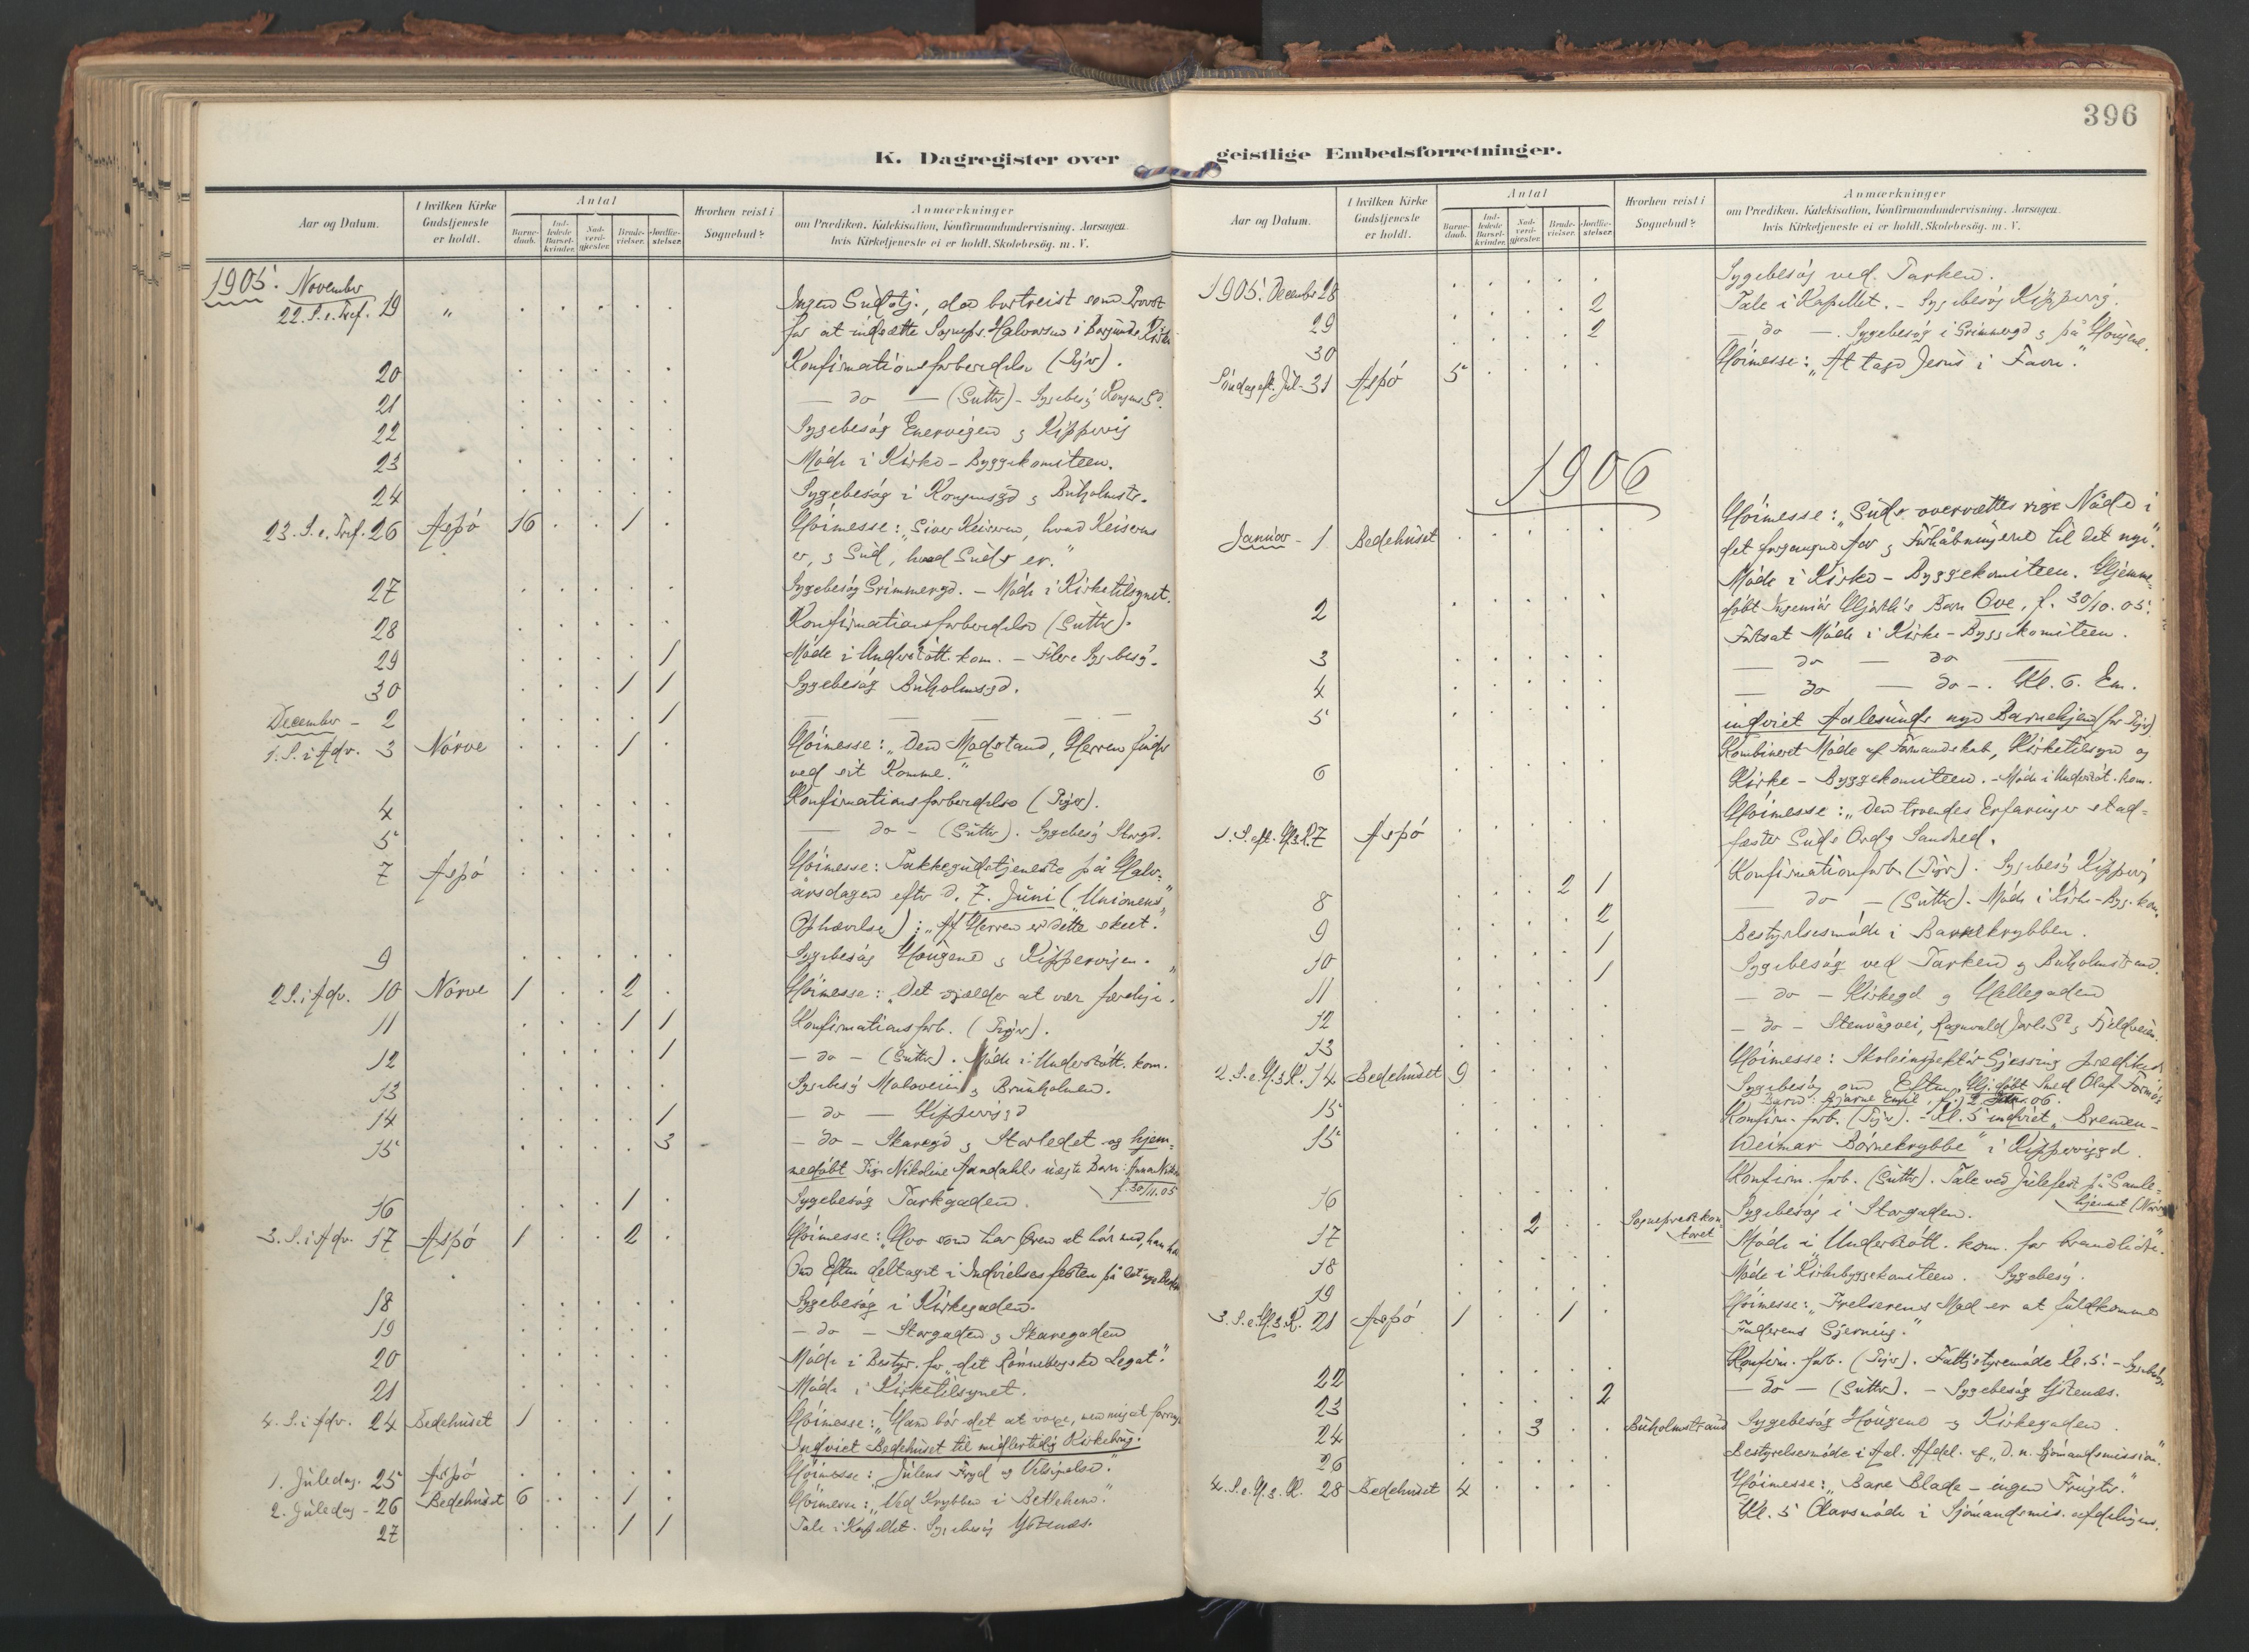 396
K. Dagregister over geistlige Embedsforretninger.
Aar og Datum.
I hvilken Kirke Gudstjeneste er holdt.
Antal
Barne-daab.
Ind-ledede Barsel-kvinder.
Nad-verd-gjester.
Brude-vielser.
Jordfæ-stelser.
Hvorhen reist i Sognebud?
Anmærkninger
om Prædiken, Katekisation, Konfirmandundervisning, Aarsagen,
hvis Kirketjeneste ei er holdt, Skolebesög. m. V.
1905. November
22. S. e. Tref. 19 " Ingen Gudstj., da bortreist som Provst
for at indsætte Sognepr. Halvorsen i Borgunds Kirke
20 Konfirmationsforberedelse (Piger).
21 — do — (Gutter) - Sygebesøg Kongens Gd.
22 Sygebesøg Enervigen og Kippervig
23 Møde i Kirke-Byggekomiteen.
24 Sygebesøg i Kongensgd og Buholmstr.
23. S. e. Tref. 26 Aspö 16 1 Høimesse: "Giver Keiseren, hvad Keiserens
er, og Gud, hvad Guds er."
27 Sygebesøg Grimmergd. - Møde i Kirketilsynet.
28 Konfirmationsforberedelse (Gutter).
29 1 Møde i Understøtt. kom. - Flere Sygebesøg.
30 1 1 Sygebesøg Buholmsgd.
December - 2 1 — — — —
1. S. i Adv. 3 Nörve 1 Høimesse: "Den Modstand, Herren finder
ved sit Komme."
4 Konfirmationsforberedelse (Piger).
5 — do - (Gutter). Sygebesøg Storgd.
7 Aspö Høimesse: Takkegudstjeneste på Halv-
årsdagen efter d. 7. Juni ("Unionens
Ophævelse): "Af Herren er dette skeet."
9 Sygebesøg Hougene og Kippervigen.
2 S. i Adv. 10 Nörve 1 2 Høimesse: "Det gjælder at være færdige."
11 1 1 Konfirmationsforb. (Piger).
12 1 - do - (Gutter). Møde i Understøtt. kom.
13 Sygebesøg Moloveien og Brunholmen.
14 1 - do - Kippervigsgd
15 3 - do - Skaregd og Storledet og hjem-
medøbt Pige Nikoline Aandahls uægte Barn: Anna
f. 30/11.05
16 1 Sygebesøg Parkgaden.
3. S. i Adv. 17 Aspö 1 2 Høimesse: "Hvo som har Øren at høre med, han
Om Eftm deltaget i Indvielsesfesten på det nye
18 Sygebesøg i Kirkegaden.
19 - do - Storgaden og Skaregaden
20 Møde i Bestyr. for "det Rønnebergske Legat".
21 Møde i Kirketilsynet.
4. S. i Adv. 24 Bedehuset 1 Høimesse: "Ham bör det at voxe, men mig at
Indviet Bedehuset til midlertidig Kirkebrug.
1. Juledag. 25 Aspö Høimesse: "Julens Fryd og Velsignelse."
2. Juledag - 26 Bedehuset 6 1 Høimesse: "Ved Krybben i Betlehem."
27 1 1 Tale i Kapellet. Sygebesøg Ystenæs.
1905. December 28 Sygebesøg ved Parken.
29 2 Tale i Kapellet. - Sygebesøg Kippervig.
30 2 - do — . Sygebesøg i Grimmergd og på Hougene.
Söndag eft. Jul - 31 Aspö 5 Høimesse: "At tage Jesus i Favn."
1906
Januar - 1 Bedehuset Høimesse: "Guds overvættes rige Nåde i
det forgangne Aar og Forhåbningerne til det nye."
2 Møde i Kirke-Byggekomiteen. Hjemme-
døbt Ingeniør Barn Ove, f. 30/10.05.
3 Fortsat Møde i Kirke-Byggekomiteen.
4 — do — do —
5 — do — do -. Kl. 6. Em.
indviet Aalesunds nye Barnehjem (for Piger)
6 Kombineret Møde af Formandskab, Kirketilsyn og
Kirke-Byggekomiteen. - Møde i Understøt. kom.
1. S. eft. H. 3. K. 7 Aspö Høimesse: "Den troendes Erfaringer stad-
fæster Guds Ords Sandhed.
8 2 1 Konfirmationsforb. (Piger). Sygebesøg Kippervig
9 2 — do - (Gutter). Møde i Kirke-Byg. kom.
10 1 Bestyrelsesmøde i Barnekrybben.
11 1 Sygebesøg ved Parken og Buholmstrand.
12 - do - Kirkegd og Hellegaden
13 - do - Stenvågvei, Ragnvald Jarls Gd og Fjeldveien
2. S. e. H. 3. K. 14 Bedehuset 9 Høimesse: Skoleinspektør Gjessing prædiked
15 Sygebesøg om Eftm. Hj. døbt Smed Olaf
Barn: Bjarne Emil, 06.
15 Konfirm. forb. (Piger). - Kl. 5 indviet "Bremen-
Weimar Børnekrybbe" i Kippervigsgd.
16 Konfirm. forb. (Gutter). Tale ved Julefest på Gamle-
hjemmet (Nörve
17 2 Sogneprestkon-toret Sygebesøg i Storgaden.
18 Møde i "Understøtt. kom. for brandlidte".
19 Møde i Kirkebyggekomiteen. Sygebesøg.
3. S. e. H. 3. K. 21 Aspö 1 1 Høimesse: "Frelserens Mad er at fuldkomme
Faderens Gjerning."
22 Konfirm. forb. (Piger). Fattigstyremøde Kl. 5. - Sygebesøg.
23 2 — do — (Gutter). - Sygebesøg Ystenæs.
24 3 Buholmstrand Sygebesøg Hougene og Kirkegaden
26 Bestyrelsesmøde i Aal. Afdel. af "D. n. Sjömandsmission".
4. S. e. H. 3. K. 28 Bedehuset 4 Høimesse: "Bare Blade - ingen Frugter."
Kl. 5 Aarsmøde i Sjömandsmis. afdelingen.